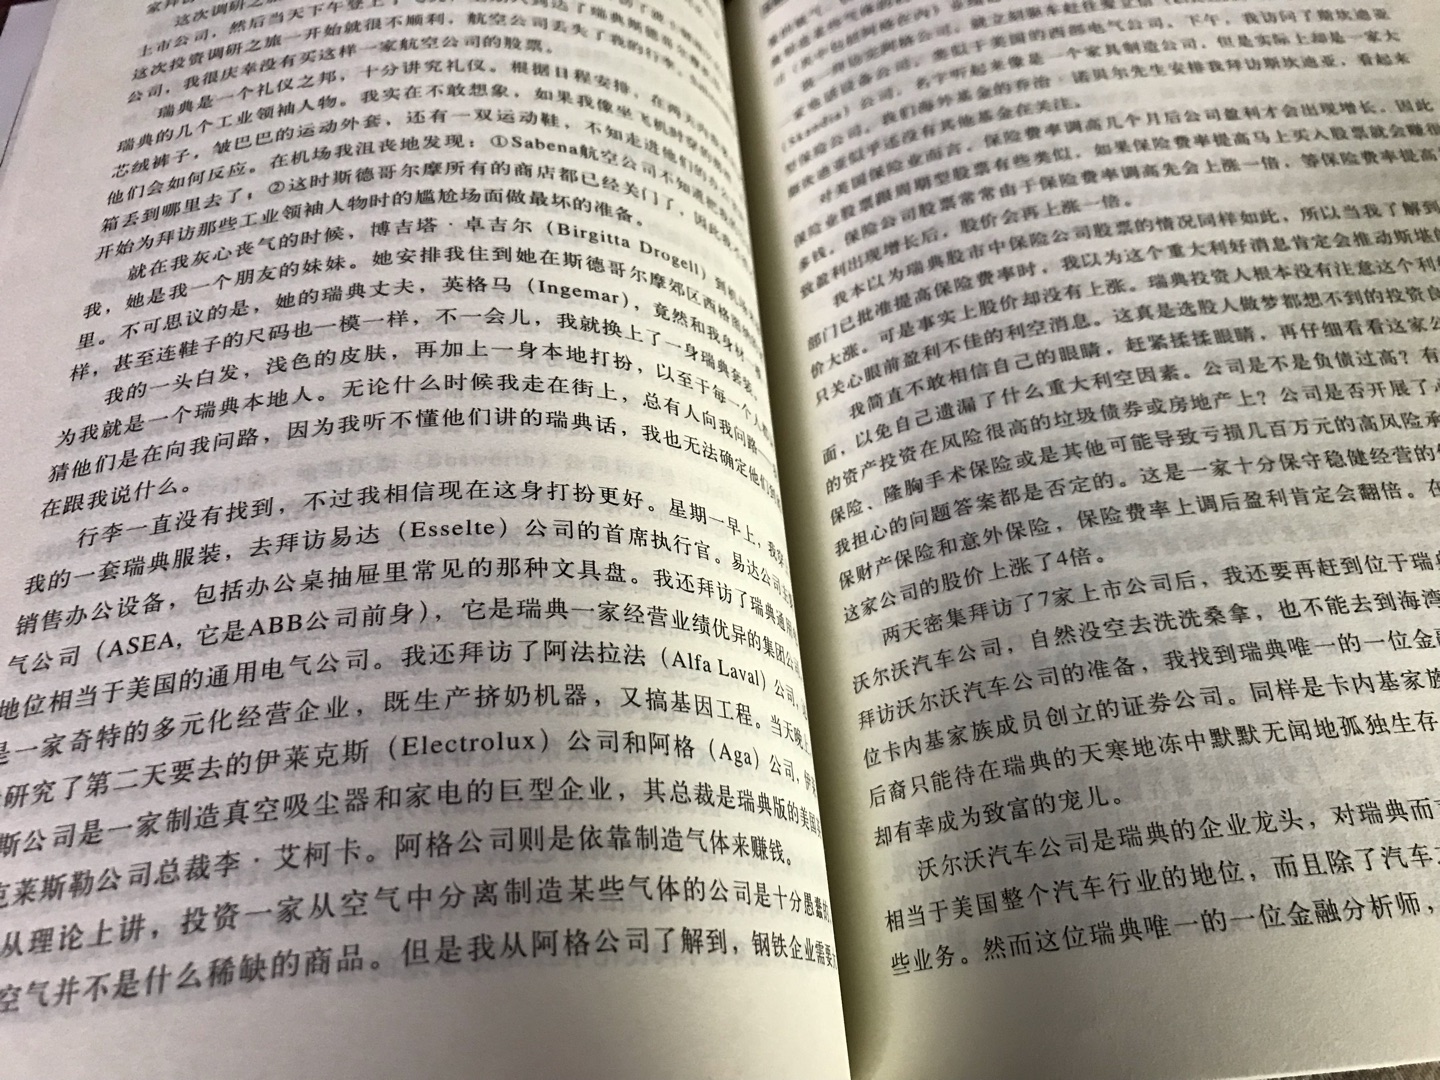 这次调研之旅
上市公司，然后当天下午登上
这次投资调研之旅一开始就很不顺利，航空公司丢失了我的行李。
公司，我很庆幸没有买这样一家航空公司的股票。
瑞典是一个礼仪之邦，十分讲究礼仪。根据日程安排，在两天内
瑞典的几个工业领袖人物。我实在不敢想象，如果我像坐飞机时穿的
芯绒裤子，皱巴巴的运动外套，还有一双运动鞋，不知走进他们的办公
他们会如何反应。在机场我沮丧地发现：①Sabena航空公司不知道把我的
箱丢到哪里去了；②这时斯德哥尔摩所有的商店都已经关门了，因此我
开始为拜访那些工业领袖人物时的尴尬场面做最坏的准备。
就在我灰心丧气的时候，博吉塔·卓吉尔（Birgitta Drogell）到机场
我，她是我一个朋友的妹妹。她安排我住到她在斯德哥尔摩郊区西格
里。不可思议的是，她的瑞典丈夫，英格马（Ingemar），竟然和我身材一
样，甚至连鞋子的尺码也一模一样，不一会儿，我就换上了一身瑞典套装。
我的一头白发，浅色的皮肤，再加上一身本地打扮，以至于每一个人都
为我就是一个瑞典本地人。无论什么时候我走在街上，总有人向我问路
猜他们是在向我问路，因为我听不懂他们讲的瑞典话，我也无法确定他们
在跟我说什么。
行李一直没有找到，不过我相信现在这身打扮更好。星期一早上，我穿
我的一套瑞典服装，去拜访易达（Esselte）公司的首席执行官。易达公司主
销售办公设备，包括办公桌抽屉里常见的那种文具盘。我还拜访了瑞典通用
气公司（ASEA，它是ABB公司前身），它是瑞典一家经营业绩优异的集团公
地位相当于美国的通用电气公司。我还拜访了阿法拉法（Alfa Laval）公司，
是一家奇特的多元化经营企业，既生产挤奶机器，又搞基因工程。当天晚上
研究了第二天要去的伊莱克斯（Electrolux）公司和阿格（Aga）公司，伊
斯公司是一家制造真空吸尘器和家电的巨型企业，其总裁是瑞典版的美国
克莱斯勒公司总裁李·艾柯卡。阿格公司则是依靠制造气体来赚钱。
从理论上讲，投资一家从空气中分离制造某些气体的公司是十分愚蠢的，
空气并不是什么稀缺的商品。但是我从阿格公司了解到，钢铁企业需要
就立刻驱车赶往爱立信
一家电话设备公司，类似于美国的西部电气公司。下午，我访问了斯坎迪亚
（Skandia）公司，名字听起来像是一个家具制造公司，但是实际上却是一家大
型保险公司。我们海外基金的乔治·诺贝尔先生安排我拜访斯坎迪亚，看起来
斯坎迪亚似乎还没有其他基金在关注。
对美国保险业而言，保险费率调高几个月后公司盈利才会出现增长。因此
保险业股票跟周期型股票有些类似，如果保险费率提高马上买入股票就会赚很
多钱。保险公司股票常常由于保险费率调高先会上涨一倍，等保险费率提高
致盈利出现增长后，股价会再上涨一倍。
我本以为瑞典股市中保险公司股票的情况同样如此，所以当我了解到
部门已批准提高保险费率时，我以为这个重大利好消息肯定会推动斯堪
价大涨。可是事实上股价却没有上涨。瑞典投资人根本没有注意这个利
只关心眼前盈利不佳的利空消息。这真是选股人做梦都想不到的投资良
我简直不敢相信自己的眼睛，赶紧揉揉眼睛，再仔细看看这家公
面，以免自己遗漏了什么重大利空因素。公司是不是负债过高？有
的资产投资在风险很高的垃圾债券或房地产上？公司是否开展了
保险、隆胸手术保险或是其他可能导致亏损几百万元的高风险承
我担心的问题答案都是否定的。这是一家十分保守稳健经营的
保财产保险和意外保险，保险费率上调后盈利肯定会翻倍。在
这家公司的股价上涨了4倍。
两天密集拜访了7家上市公司后，我还要再赶到位于瑞典
沃尔沃汽车公司，自然没空去洗洗桑拿，也不能去到海湾
拜访沃尔沃汽车公司的准备，我找到瑞典唯一的一位金融
位卡内基家族成员创立的证券公司。同样是卡内基家族
后裔只能待在瑞典的天寒地冻中默默无闻地孤独生存
却有幸成为致富的宠儿。
沃尔沃汽车公司是瑞典的企业龙头，对瑞典而言
相当于美国整个汽车行业的地位，而且除了汽车
些业务。然而这位瑞典唯一的一位金融分析师，